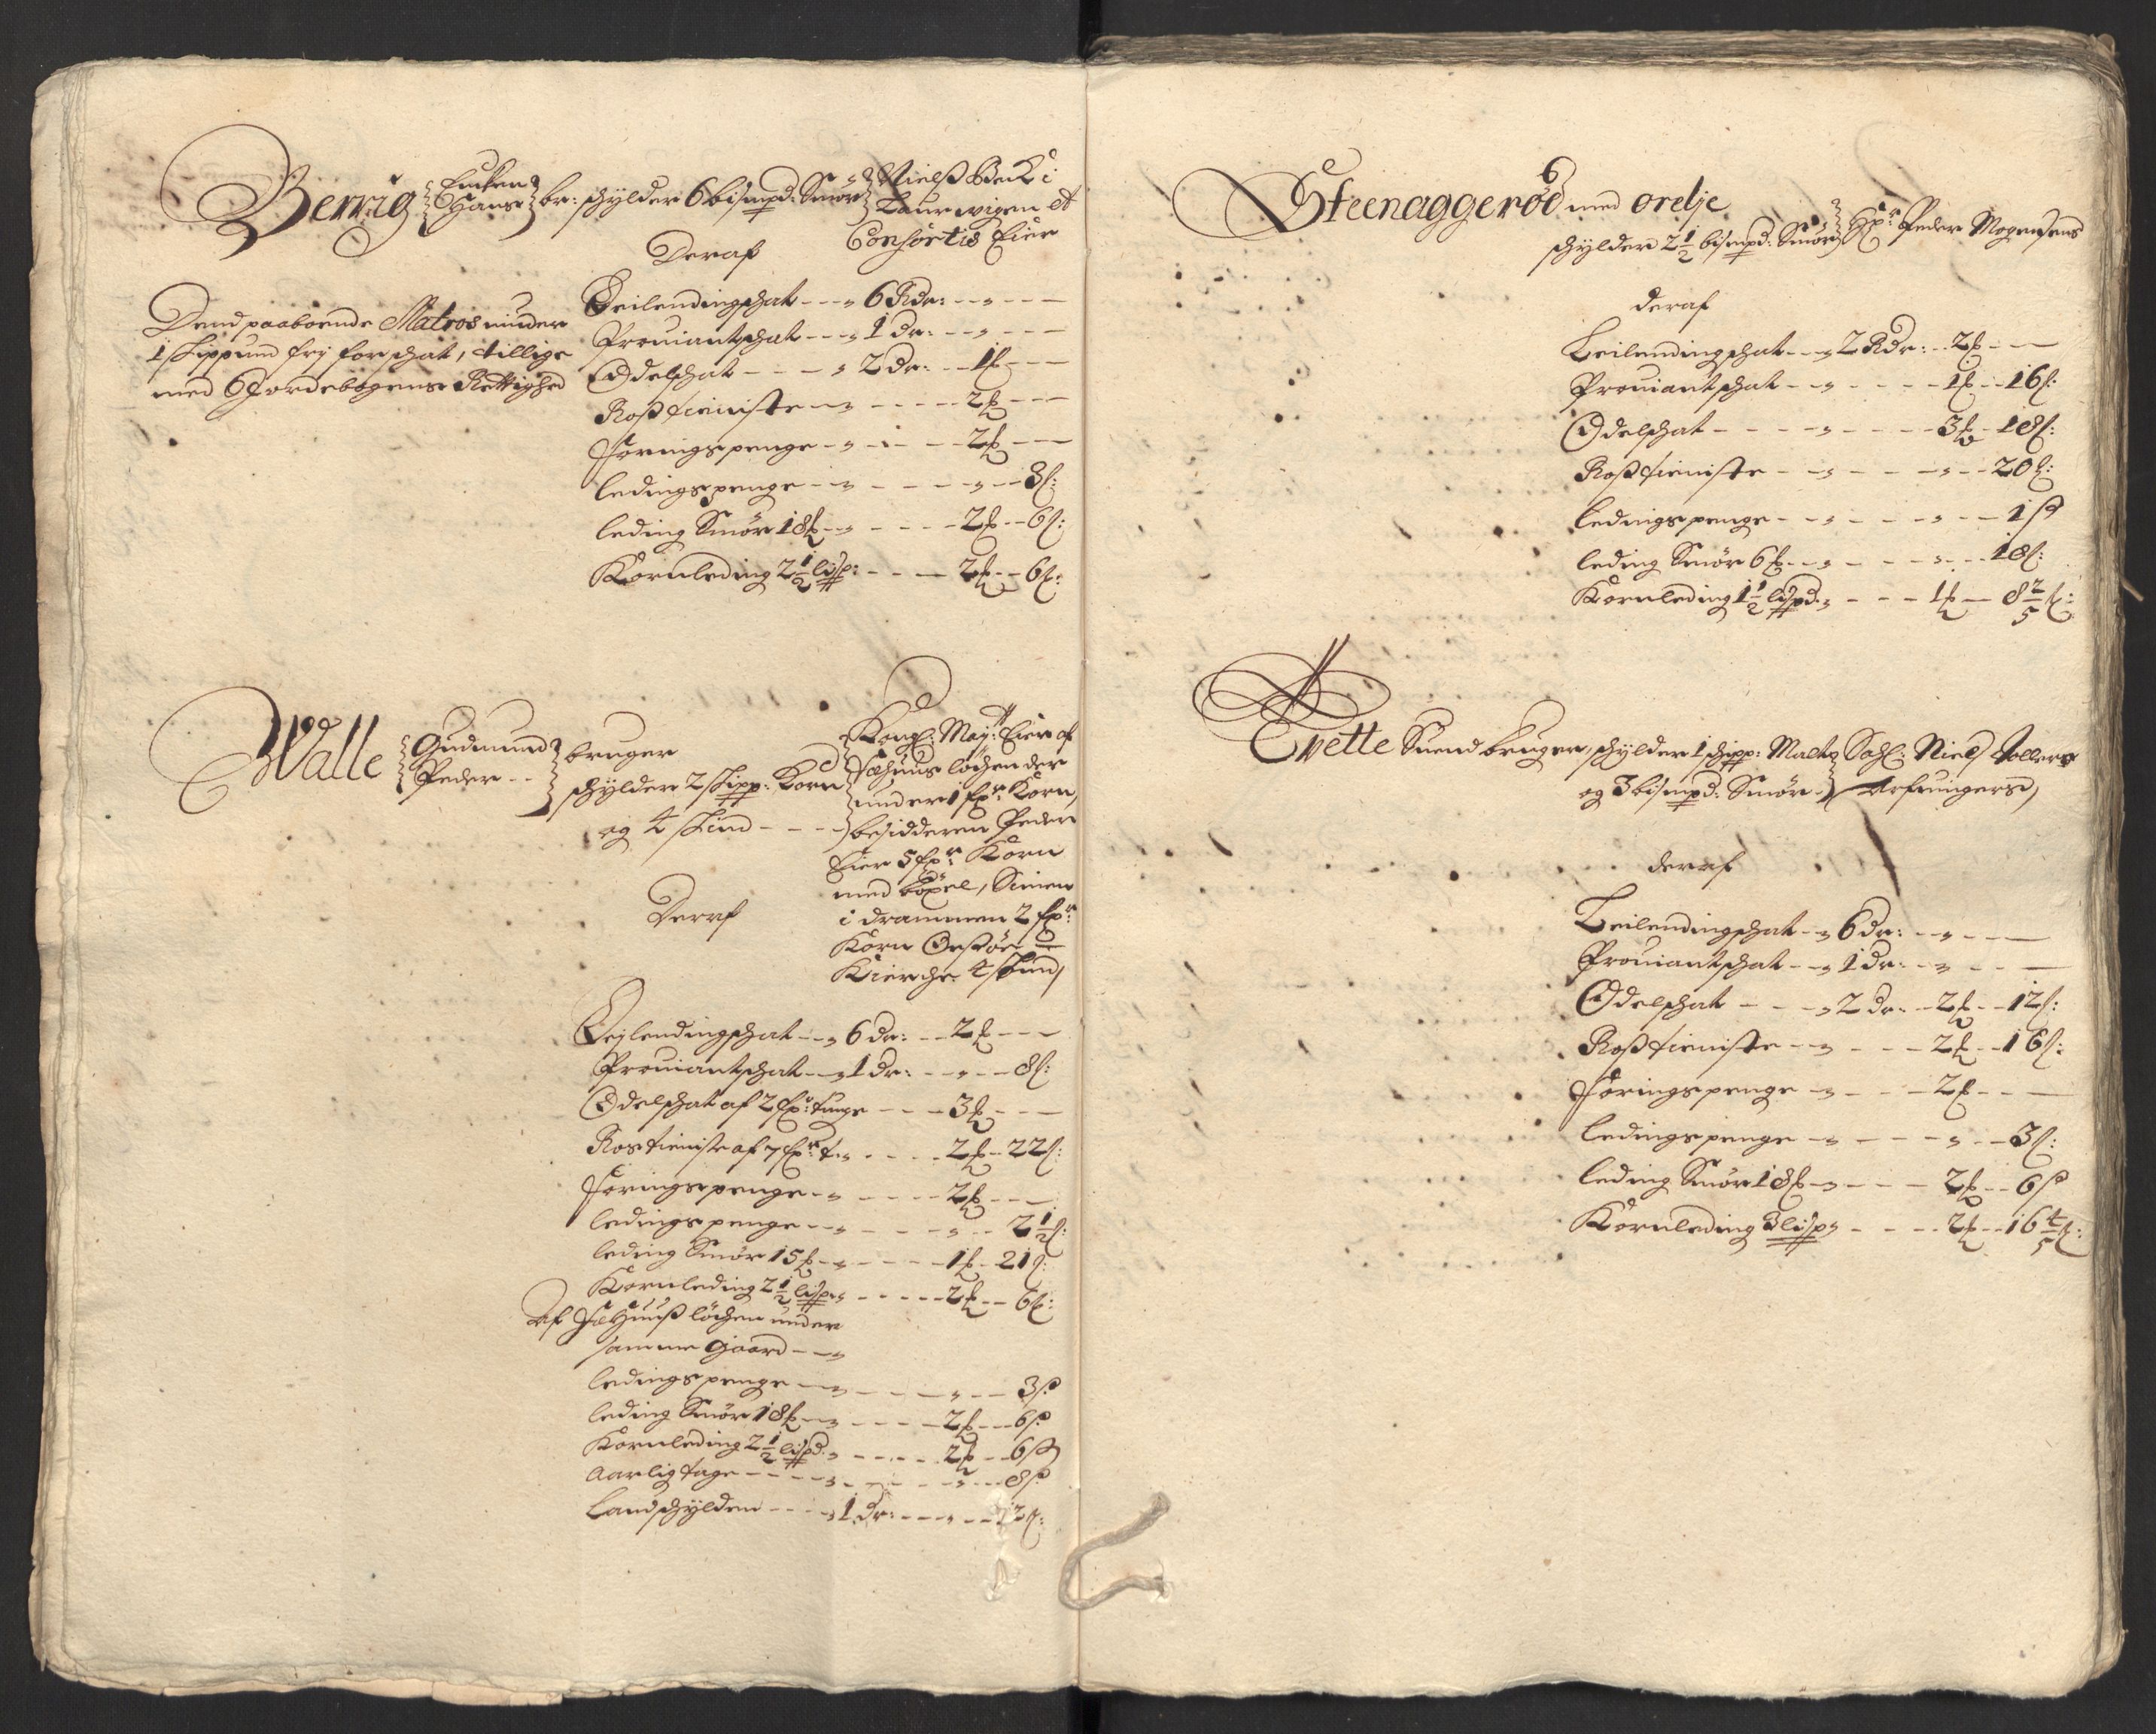 Berrig Lucken Hans br: schylder 6 bismpd: Smør Nielß Beck i
Laurwigen et
Consortis Eier
Deraf
Dend paaboende Matros under
1 skippund frj for schat, tillige
med Jordebogens Rettighed
Leilendingschat - - - 6 Rdr: - - -
Prouiantschat - - - 1 dr: - - -
Odelschat - - - 2 dr: - - 1 ₰ - - -
Roßtieniste - - - 2 ₰ - - -
Foringspenge - - - 2 ₰ - - -
ledingspenge - - - 3 ß:
leding Smør 18 ₰ - - - 2 ₰ - - 6 ß:
Kornleding 2½ lisp: - - - 2 ₰ - - 6 ß:
Walle Gudmund Peder - - bruger
schylder 2 skipp: Korn
og 4 skind - - -
Kongl: Mayt: Eier af
Fæhuus løchen der
under 1 fxr: Korn,
besidderen Peder
Eier 5 fxr: Korn
med bøxel, Simen
i drammen 2 fxr:
Korn
Kierche 4 skind,
Deraf
Lejlendingschat - - - 6 dr: - - 2 ₰ - - -
Prouiantschat - - - 1 dr: - - - 8 ß:
Odelschat af 2 fxr: tunge - - - 3 ₰ - - -
Rostieniste af 7 fxr: t: - - - 2 ₰ - 22 ß:
Foringspenge - - - 2 ₰ - - -
ledingspenge - - - 2½ ß:
leding Smør 15 ₰ - - - 1 ₰ - 21 ß:
Kornleding 2½ lisp: - - - 2 ₰ - - 6 ß:
Af Fæhuuß løchen under
samme gaard - - -
ledingspenge - - - 3 ß
leding Smør 18 ₰ - - - 2 ₰ - - 6 ß
Kornleding 2½ lispd: - - - 2 ₰ - - 6 ß
Aarlig tage - - - 8 ß
Landschylden - - - 1 dr: - - - 12 ß:
Steenaggerød med orelje
schylder 2½ bismpd: Smør Hr: Peder Mogensens
deraf
Leilendingschat - - 2 Rdr: - 2 ₰ - -
Prouiantschat - - - 1 ₰ - - 16 ß:
Odelschat - - - 3 ₰ - 18 ß:
Roßtieniste - - - 20 ß:
ledingspenge - - - 1 ß
leding Smør 6 ₰ - - - 18 ß:
Kornleding 1½ lispd: - - - 1 ₰ - 8⅖ ß:
Evette Suend bruger, schylder 1 schipp: Malt Sahl: Niels Tollers
og 3 bismpd: Smør - Arfuingers,
deraf
Leilendingschat - - 6 dr: - - -
Prouiantschat - - 1 dr: - - -
Odelschat - - - 2 dr: - 2 ₰ - - 12 ß:
Roßtieniste - - - 2 ₰ - - 16 ß:
Foringspenge - - - 2 ₰ - - -
ledingspenge - - - 3 ß:
leding Smør 18 ₰ - - - 2 ₰ - - 6 ß
Kornleding 3 lisp: - - - 2 ₰ - - 16⅘ ß: